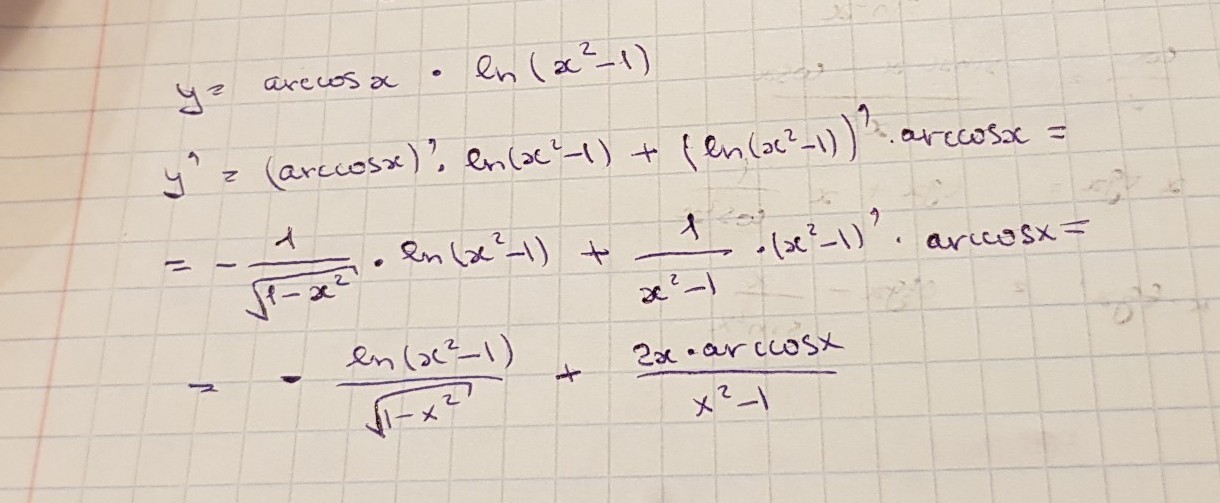 y = arccosx · ln(x²-1)
y' = (arccosx)' · ln(x²-1) + (ln(x²-1))' · arccosx =
= - 1/√(1-x²) · ln(x²-1) + 1/(x²-1) · (x²-1)' · arccosx =
= - ln(x²-1)/√(1-x²) + 2x·arccosx/(x²-1)